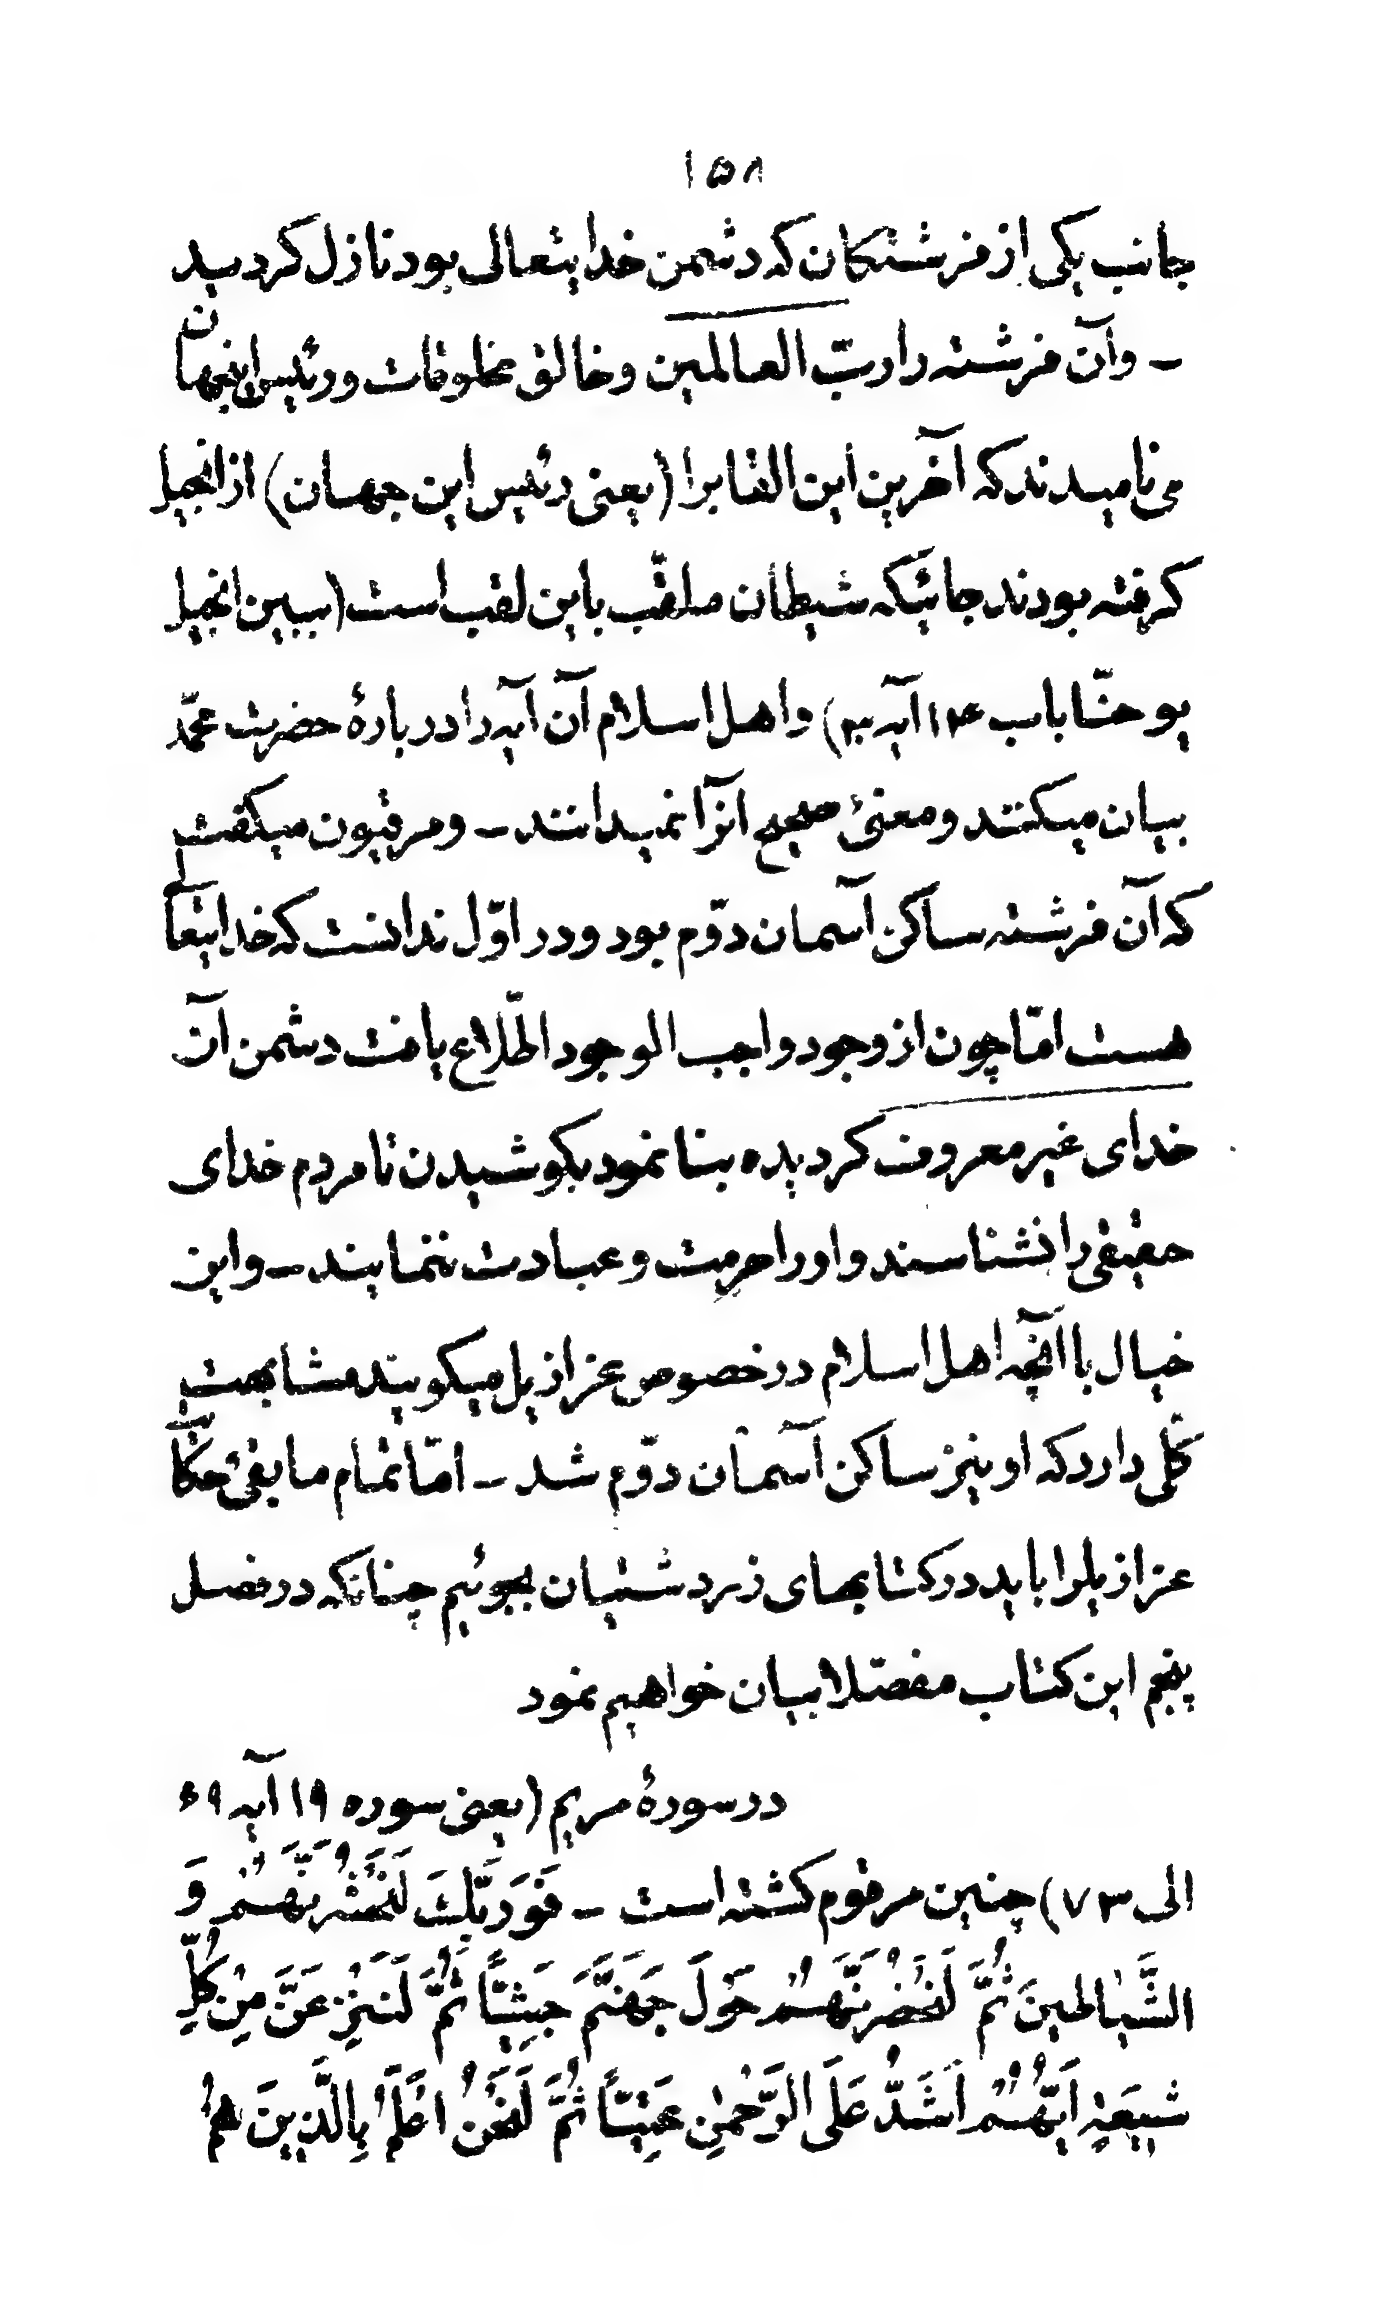 ۱۵۸
جانب یکی از فرشتکان که دشمن خدایتعالی بود نازل کردید
- وآن فرشته را ربّ العالمین وخالق مخلوقات ورئیس اینجهان
می نامیدند که آخرین این القابرا (یعنی رئیس این جهان) از انجیل
کرفته بودند جائیکه شیطان ملقّب باین لقب است (ببین انجیل
یوحنّا باب ۱۴ آیه ۳۰) واهل اسلام آن آیه را در بارهٔ حضرت محمّد
بیان میکنند ومعنئ صحیح انرا نمیدانند - ومرقیون میکفت
که آن فرشته ساکن آسمان دوّم بود ودر اوّل ندانست که خدایتعالی
هست امّا چون از وجود واجب الوجود اطّلاع یافت دشمن آن
خدای غیر معروف کردیده بنا نمود بکوشیدن تا مردم خدای
حقیقی را نشناسند واورا حرمت وعبادت ننمایند - واین
خیال با آنچه اهل اسلام در خصوص عزازیل میکویند مشابهت
کلّی دارد که او نیز ساکن آسمان دوّم شد - امّا تمام مابقئ حکایت
عزازیلرا باید در کتابهای زردشتیان بجوئیم چنانکه در فصل
پنجم این کتاب مفصّلا بیان خواهیم نمود
در سورهٔ مریم (یعنی سوره ۱۹ آیه ۶۹
الی ۷۳) چنین مرقوم کشته است - فَوَرَبِّكَ لَنَحْشُرَنَّهُمْ وَ
الشَّيَاطِينَ ثُمَّ لَنُحْضِرَنَّهُمْ حَوْلَ جَهَنَّمَ جَثِيًّا ثُمَّ لَنَنْزِعَنَّ مِنْ كُلِّ
شِيعَةٍ اَيُّهُمْ اَشَدُّ عَلَى الرَّحْمٰنِ عِتِيًّا ثُمَّ لَنَحْنُ اَعْلَمُ بِالَّذِينَ هُمْ